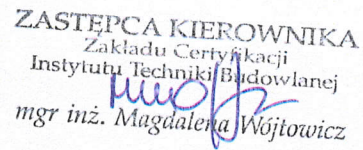 ZASTĘPCA KIEROWNIKA
Zakładu Certyfikacji
Instytutu Techniki Budowlanej
mgr inż. Magdalena Wójtowicz